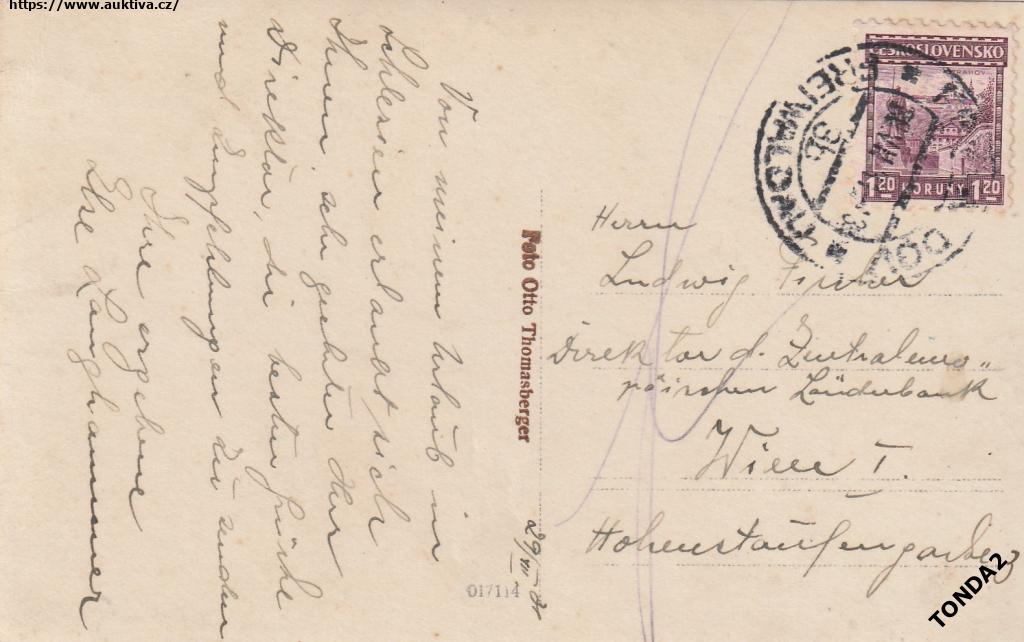 https://www.auktiva.cz/
Von meinem Urlaub in
Schlesien erlaubt sich
Ihnen, sehr geehrter Herr
Direktor, die besten Grüsse
und Empfehlungen zu senden
Ihre ergebene
Else Langhammer
Foto Otto Thomasberger
29 VII
017114
ČESKOSLOVENSKO
STRAHOV
1 20 KORUNY 1 20
FREIWALDAU
3b
Herrn
Ludwig Fischer
Direktor d. Zentraleuro„
päischen Länderbank
Wien I.
Hohenstaufengasse 3
TONDA2